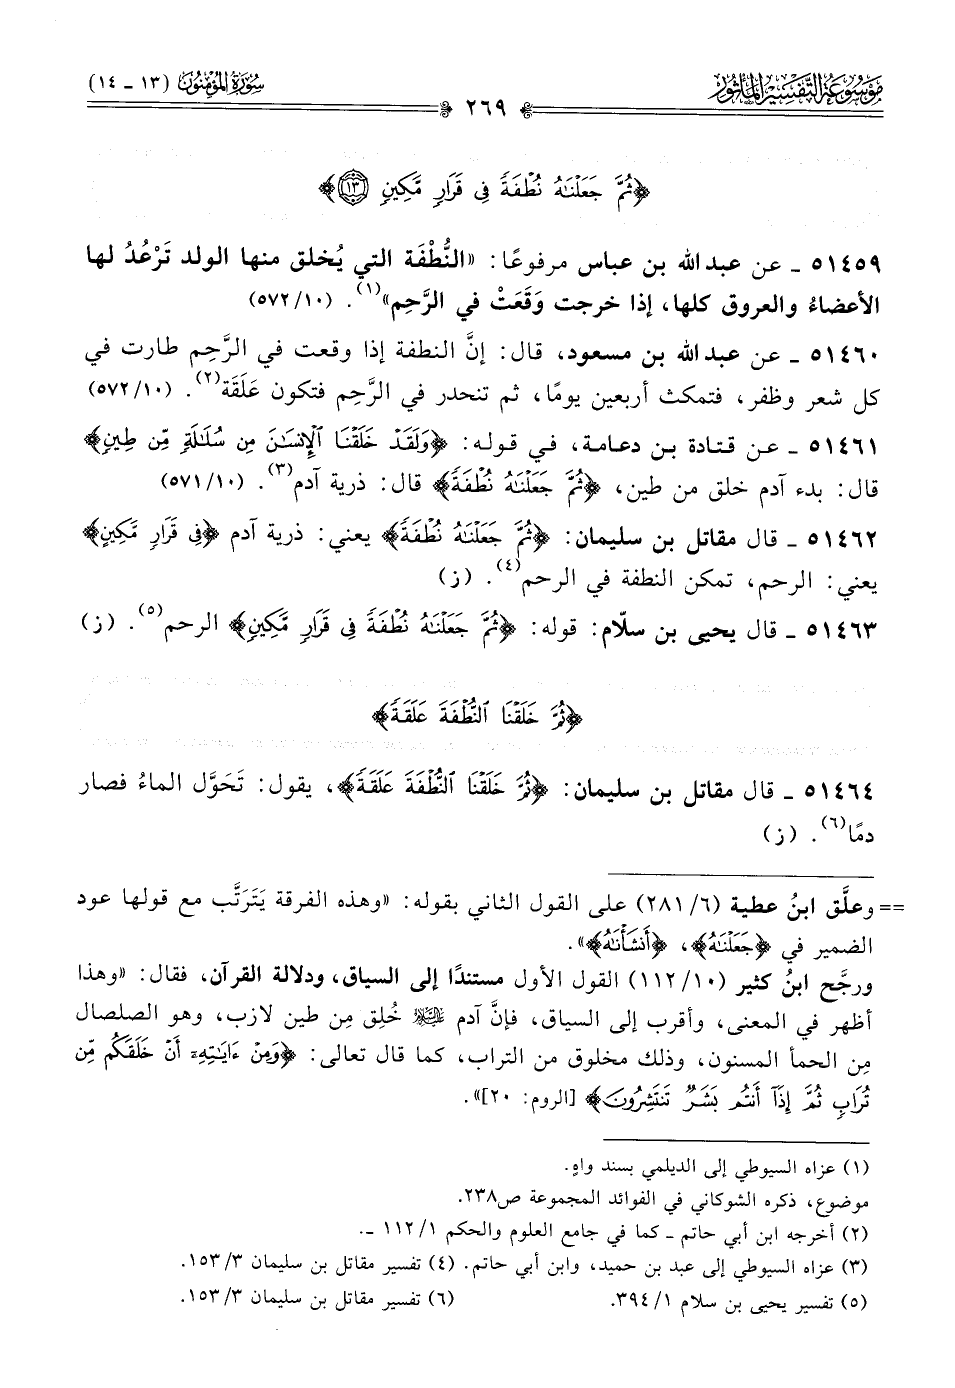 موسوعة التفسير المأثور
٢٦٩
سورة المؤمنون (١٣ ـ ١٤)
﴿ثُمَّ جَعَلْنَٰهُ نُطْفَةً فِى قَرَارٍ مَّكِينٍ ١٣﴾
٥١٤٥٩ ـ عن عبد الله بن عباس مرفوعًا: «النُّطْفَة التي يُخلق منها الولد تَرْعُدُ لها
الأعضاءُ والعروق كلها، إذا خرجت وَقَعَتْ في الرَّحِم»(١). (١٠/ ٥٧٢)
٥١٤٦٠ ـ عن عبد الله بن مسعود، قال: إنَّ النطفة إذا وقعت في الرَّحِم طارت في
كل شعر وظفر، فتمكث أربعين يومًا، ثم تنحدر في الرَّحِم فتكون عَلَقَة(٢). (١٠/ ٥٧٢)
٥١٤٦١ ـ عن قتادة بن دعامة، في قوله: ﴿وَلَقَدْ خَلَقْنَا ٱلْإِنسَٰنَ مِن سُلَٰلَةٍ مِّن طِينٍ﴾
قال: بدء آدم خلق من طين، ﴿ثُمَّ جَعَلْنَٰهُ نُطْفَةً﴾ قال: ذرية آدم(٣). (١٠/ ٥٧١)
٥١٤٦٢ ـ قال مقاتل بن سليمان: ﴿ثُمَّ جَعَلْنَٰهُ نُطْفَةً﴾ يعني: ذرية آدم ﴿فِى قَرَارٍ مَّكِينٍ﴾
يعني: الرحم، تمكن النطفة في الرحم(٤). (ز)
٥١٤٦٣ ـ قال يحيى بن سلّام: قوله: ﴿ثُمَّ جَعَلْنَٰهُ نُطْفَةً فِى قَرَارٍ مَّكِينٍ﴾ الرحم(٥). (ز)
﴿ثُمَّ خَلَقْنَا ٱلنُّطْفَةَ عَلَقَةً﴾
٥١٤٦٤ ـ قال مقاتل بن سليمان: ﴿ثُمَّ خَلَقْنَا ٱلنُّطْفَةَ عَلَقَةً﴾، يقول: تَحَوَّل الماءُ فصار
دمًا(٦). (ز)
== وعلَّق ابنُ عطية (٦/ ٢٨١) على القول الثاني بقوله: «وهذه الفرقة يَتَرَتَّب مع قولها عود
الضمير في ﴿جَعَلْنَٰهُ﴾، ﴿أَنشَأْنَٰهُ﴾».
ورجَّح ابنُ كثير (١٠/ ١١٢) القول الأول مستندًا إلى السياق، ودلالة القرآن، فقال: «وهذا
أظهر في المعنى، وأقرب إلى السياق، فإنَّ آدم ﵇ خُلِق مِن طين لازب، وهو الصلصال
مِن الحمأ المسنون، وذلك مخلوق من التراب، كما قال تعالى: ﴿وَمِنْ ءَايَٰتِهِۦٓ أَنْ خَلَقَكُم مِّن
تُرَابٍ ثُمَّ إِذَآ أَنتُم بَشَرٌ تَنتَشِرُونَ﴾ [الروم: ٢٠]».
(١) عزاه السيوطي إلى الديلمي بسند واهٍ.
موضوع، ذكره الشوكاني في الفوائد المجموعة ص٢٣٨.
(٢) أخرجه ابن أبي حاتم ـ كما في جامع العلوم والحكم ١/ ١١٢ ـ.
(٣) عزاه السيوطي إلى عبد بن حميد، وابن أبي حاتم. (٤) تفسير مقاتل بن سليمان ٣/ ١٥٣.
(٥) تفسير يحيى بن سلام ١/ ٣٩٤. (٦) تفسير مقاتل بن سليمان ٣/ ١٥٣.